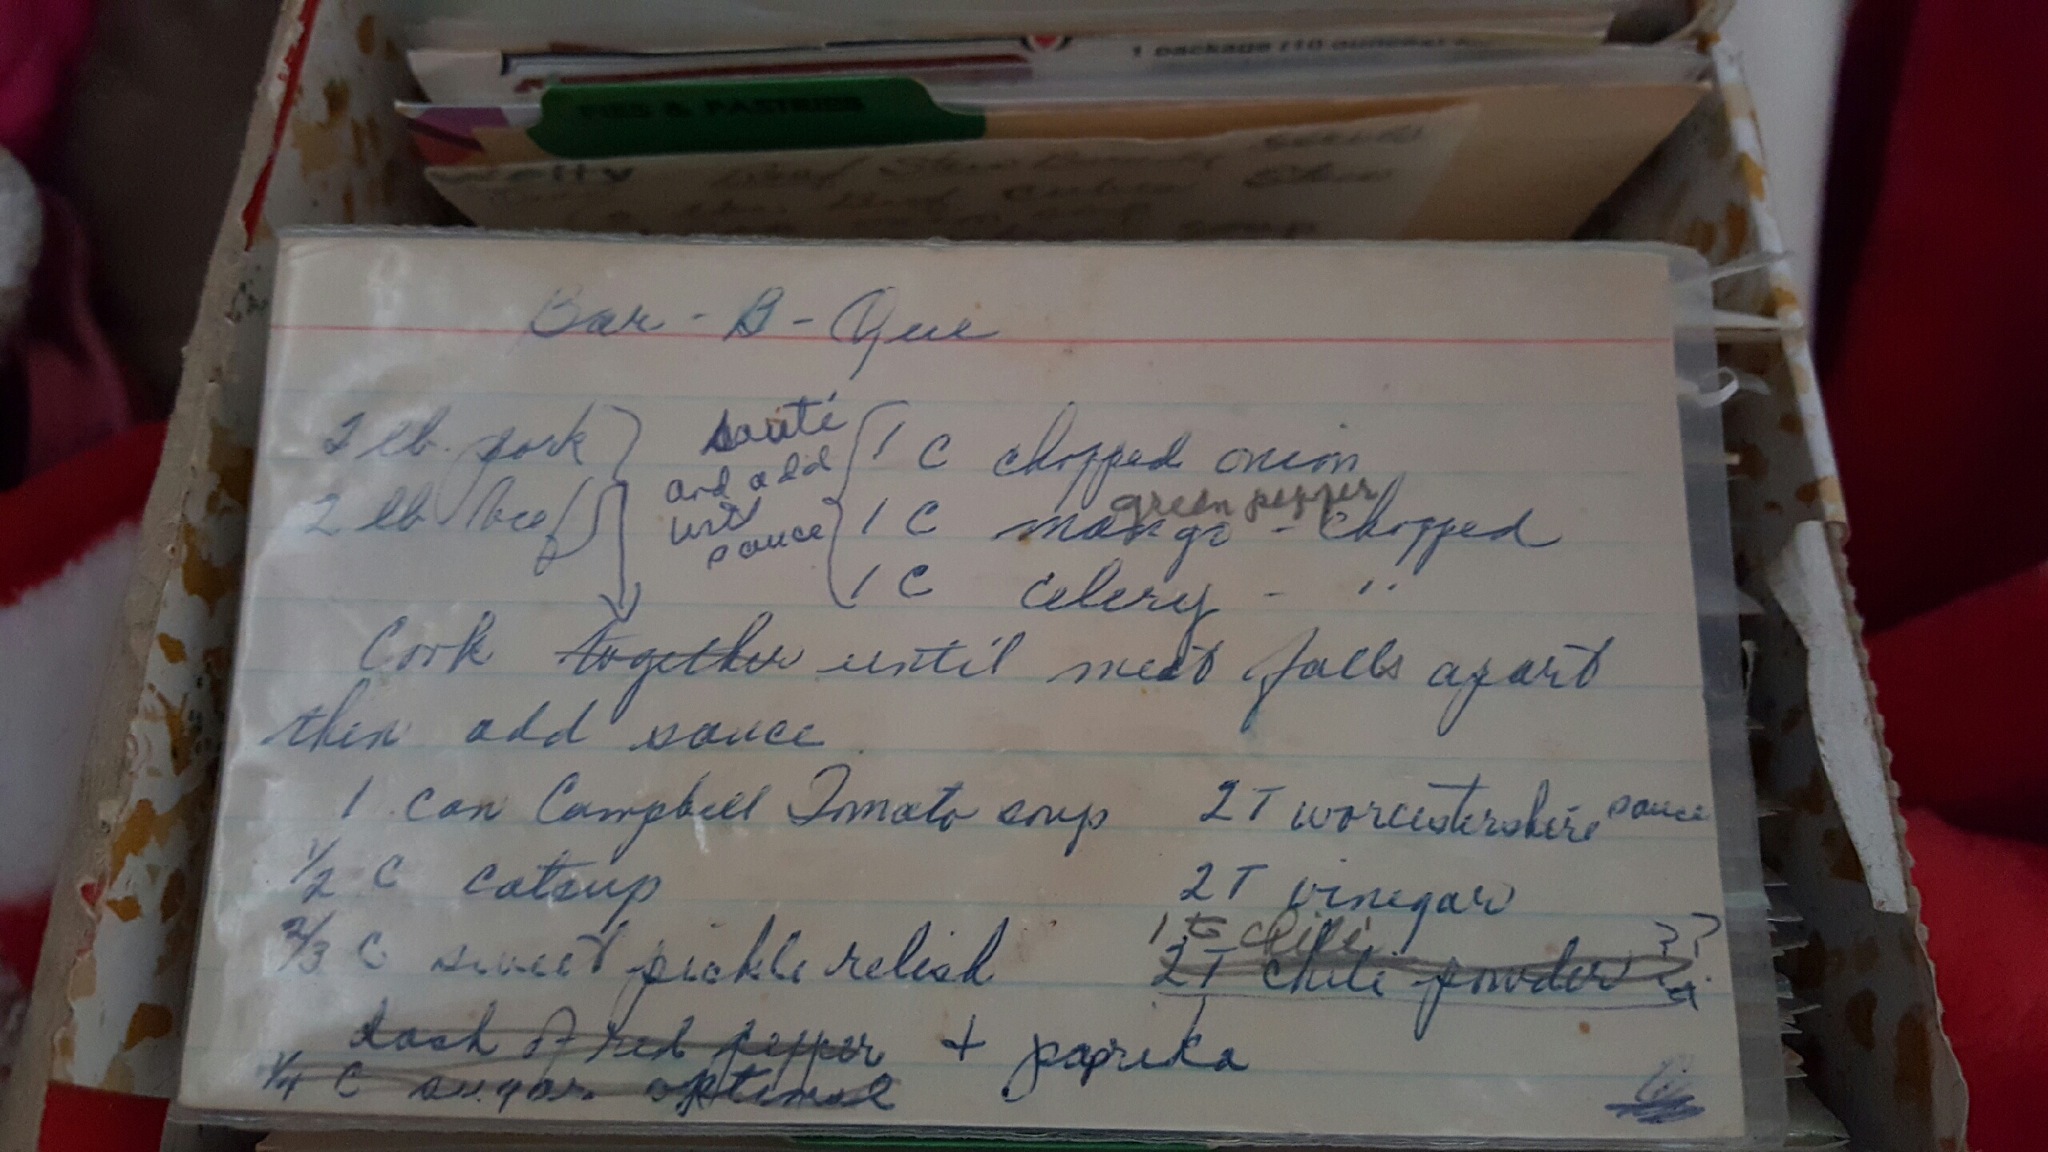 1 package (10
PIES & PASTRIES
Bar-B-Que
2 lb. pork
2 lb beef
sauté
and add
with
sauce
1 C chopped onion
green pepper
1 C mango - chopped
1 C celery - "
Cook together until meat falls apart
then add sauce
1 can Campbell Tomato soup
2 T worcestershire sauce
1/2 C catsup
2 T vinegar
1 t chili
2/3 C sweet pickle relish
2T chili powder ??
dash of red pepper + paprika
1/4 C sugar optional